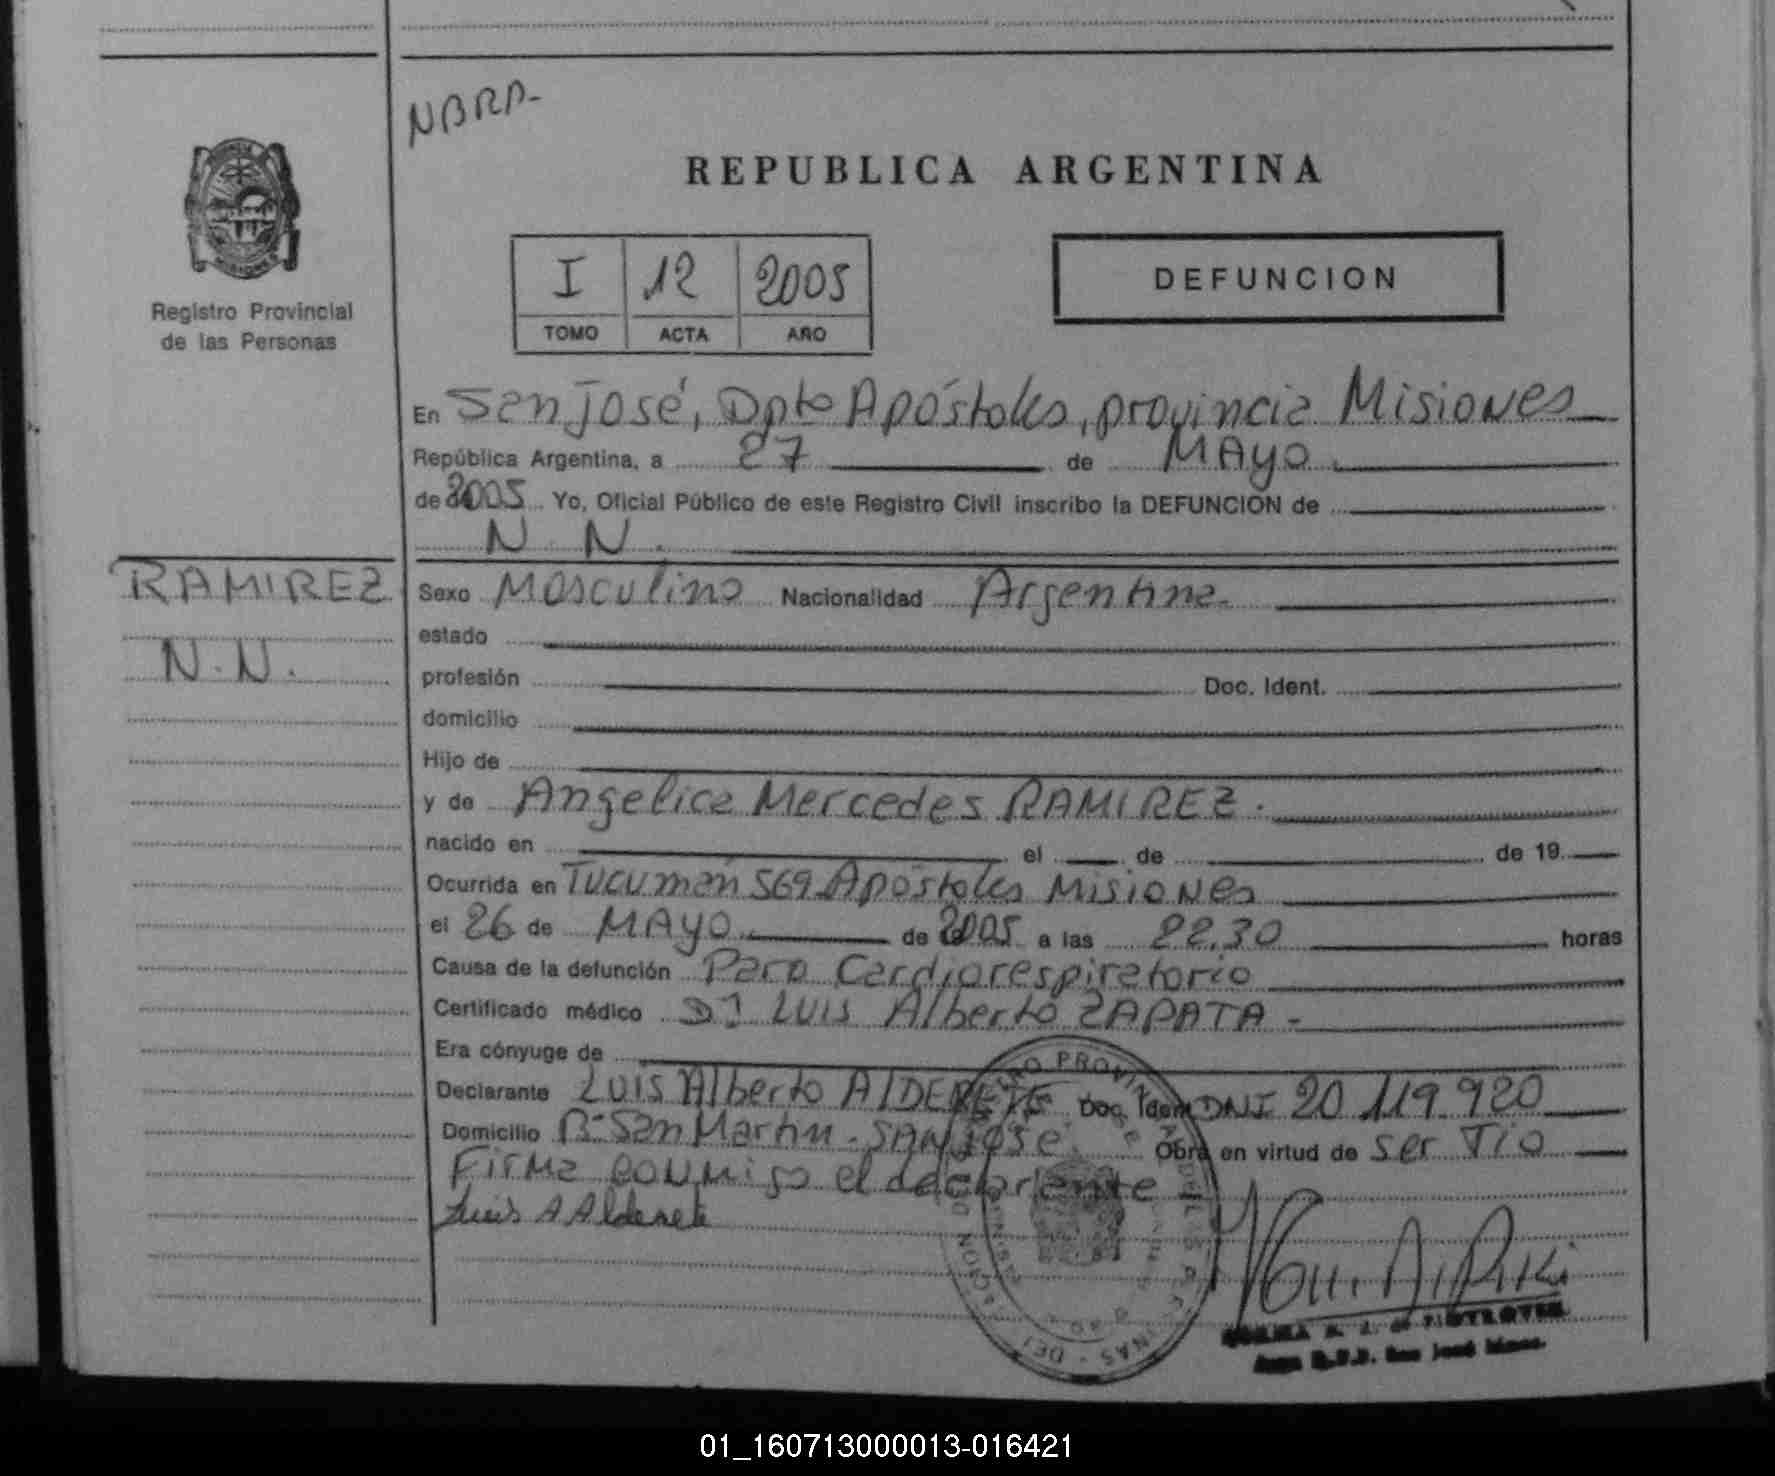 NBRP-
REPUBLICA ARGENTINA
I 12 2005
TOMO ACTA AÑO
DEFUNCION
Registro Provincial
de las Personas
En San José, Dpto Apóstoles, provincia Misiones
República Argentina, a 27 de MAYO
de 2005 Yo, Oficial Público de este Registro Civil inscribo la DEFUNCION de
N N.
RAMIREZ
N.N.
Sexo Masculino Nacionalidad Argentina
estado
profesión Doc. Ident.
domicilio
Hijo de
y de Angelica Mercedes RAMIREZ.
nacido en el de de 19
Ocurrida en Tucumán 569 Apóstoles Misiones
el 26 de MAYO de 2005 a las 22.30 horas
Causa de la defunción Paro Cardiorespiratorio
Certificado médico Dr Luis Alberto ZAPATA -
Era cónyuge de
Declarante Luis Alberto ALDERETE Doc. Ident DNI 20 119.920
Domicilio Bº San Martin - SAN JOSE Obra en virtud de ser Tio
Firma conmigo el declarante
Luis A Alderete
REGISTRO PROVINCIAL DE LAS PERSONAS
01_160713000013-016421